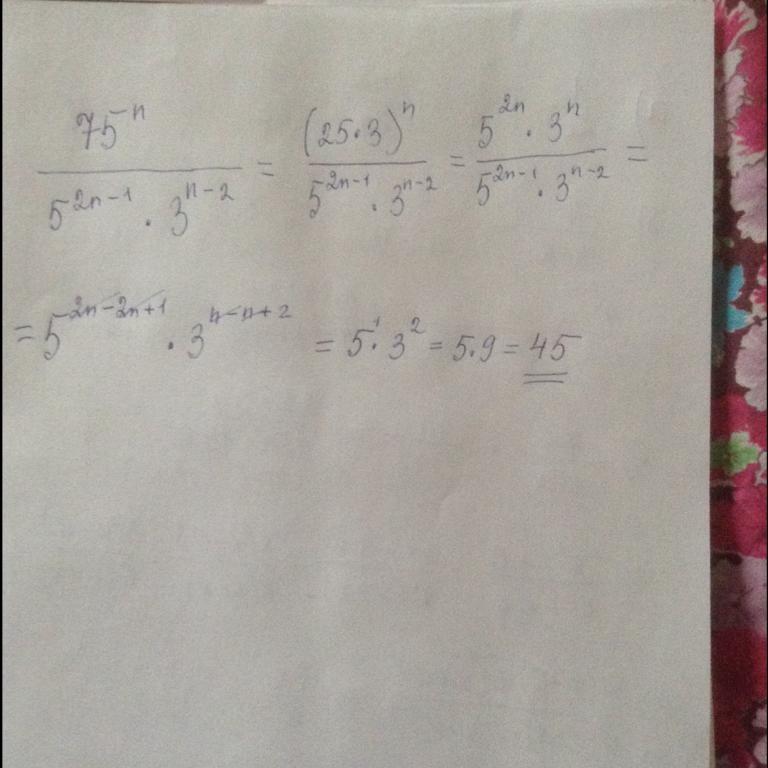 75^n / (5^(2n-1) · 3^(n-2)) = (25·3)^n / (5^(2n-1) · 3^(n-2)) = (5^(2n) · 3^n) / (5^(2n-1) · 3^(n-2)) =
= 5^(2n-2n+1) · 3^(n-n+2) = 5^1 · 3^2 = 5·9 = 45